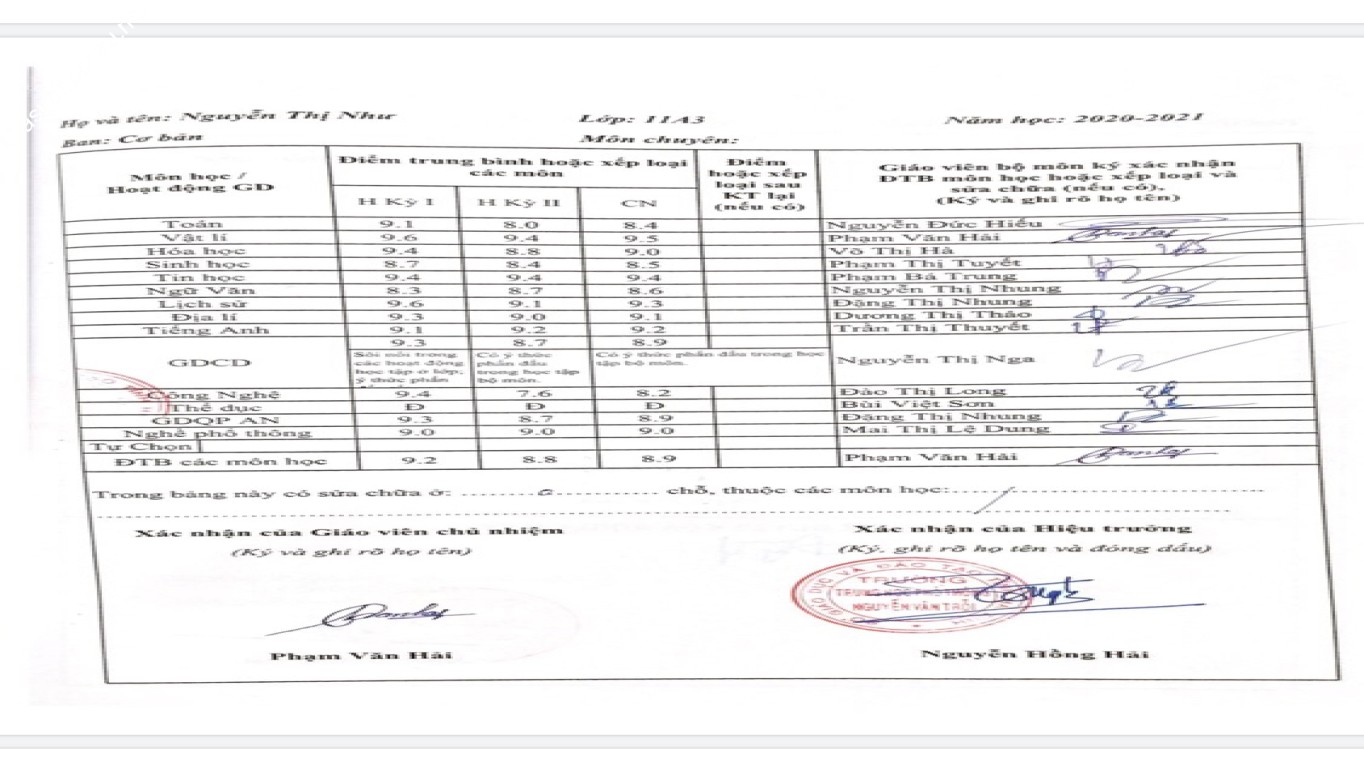 Họ và tên: Nguyễn Thị Như Lớp: 11A3 Năm học: 2020-2021
Ban: Cơ bản Môn chuyên:
Môn học / Hoạt động GD
Điểm trung bình hoặc xếp loại các môn
H Kỳ I H Kỳ II CN
Điểm hoặc xếp loại sau KT lại (nếu có)
Giáo viên bộ môn ký xác nhận ĐTB môn học hoặc xếp loại và sửa chữa (nếu có).
(Ký và ghi rõ họ tên)
Toán 9.1 8.0 8.4 Nguyễn Đức Hiếu
Vật lí 9.6 9.4 9.5 Phạm Văn Hải
Hóa học 9.4 8.8 9.0 Võ Thị Hà
Sinh học 8.7 8.4 8.5 Phạm Thị Tuyết
Tin học 9.4 9.4 9.4 Phạm Bá Trung
Ngữ Văn 8.3 8.7 8.6 Nguyễn Thị Nhung
Lịch sử 9.6 9.1 9.3 Đặng Thị Nhung
Địa lí 9.3 9.0 9.1 Dương Thị Thảo
Tiếng Anh 9.1 9.2 9.2 Trần Thị Thuyết
9.3 8.7 8.9
GDCD Sôi nổi trong các hoạt động học tập ở lớp, ý thức phấn Có ý thức phấn đấu trong học tập bộ môn. Có ý thức phấn đấu trong học tập bộ môn. Nguyễn Thị Nga
Công Nghệ 9.4 7.6 8.2 Đào Thị Long
Thể dục Đ Đ Đ Bùi Việt Sơn
GDQP AN 9.3 8.7 8.9 Đặng Thị Nhung
Nghề phổ thông 9.0 9.0 9.0 Mai Thị Lệ Dung
Tự Chọn
ĐTB các môn học 9.2 8.8 8.9 Phạm Văn Hải
Trong bảng này có sửa chữa ở: ........0............ chỗ, thuộc các môn học:......../........
Xác nhận của Giáo viên chủ nhiệm Xác nhận của Hiệu trưởng
(Ký và ghi rõ họ tên) (Ký, ghi rõ họ tên và đóng dấu)
TRƯỜNG
NGUYỄN VĂN TRỖI
Phạm Văn Hải Nguyễn Hồng Hải